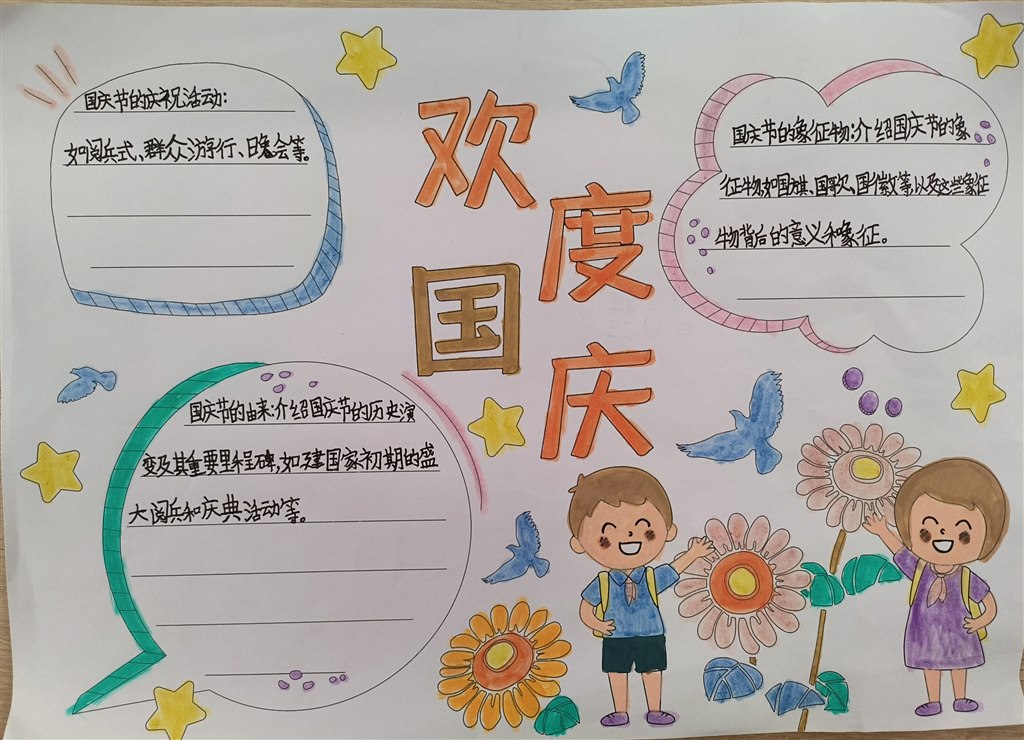 欢度
国庆
国庆节的庆祝活动:
如阅兵式、群众游行、晚会等。
国庆节的象征物:介绍国庆节的象
征物,如国旗、国歌、国徽等,以及这些象征
物背后的意义和象征。
国庆节的由来:介绍国庆节的历史演
变及其重要里程碑,如建国家初期的盛
大阅兵和庆典活动等。